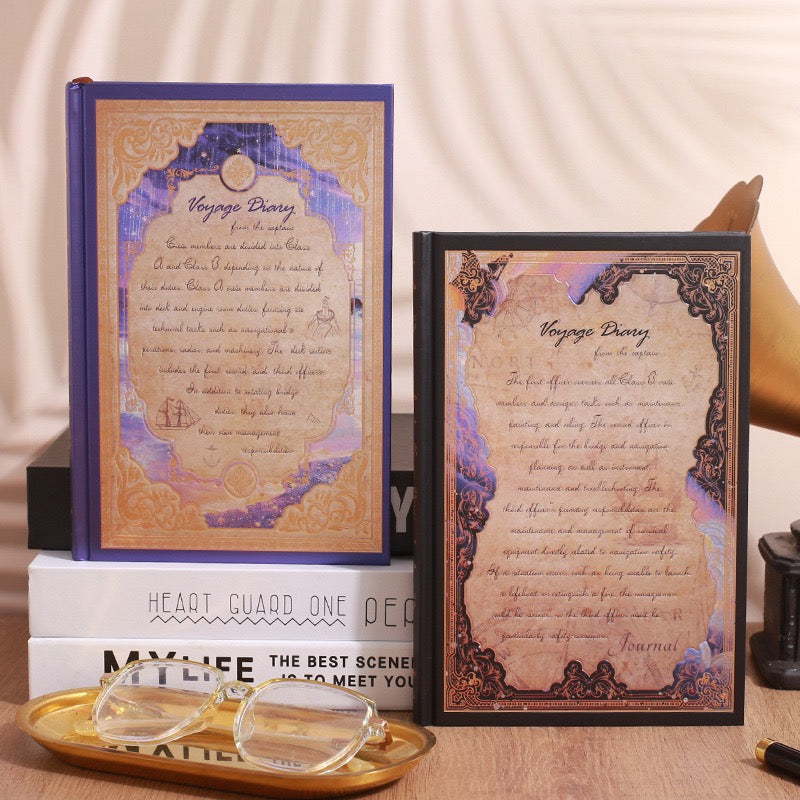 Voyage Diary
from the captain
Crew members are divided into Class
A and Class B depending on the nature of
their duties. Class A crew members are divided
into deck and engine room duties, focusing on
technical tasks such as navigational
operations, radar, and machinery. The deck section
includes the first, second and third officers.
In addition to rotating bridge
duties, they also have
their own management
responsibilities
Voyage Diary
from the captain
The first officer oversees all Class B crew
members and assigns tasks such as maintenance,
painting, and oiling. The second officer is
responsible for the bridge and navigation
planning, as well as instrument
maintenance and troubleshooting. The
third officer's primary responsibilities are the
maintenance and management of survival
equipment directly related to navigation safety.
If a situation occurs such as being unable to launch
a lifeboat or extinguish a fire, the management
would be severe, so the third officer must be
particularly safety-conscious.
Journal
HEART GUARD ONE
MY LIFE
THE BEST SCENE
IS TO MEET YOU